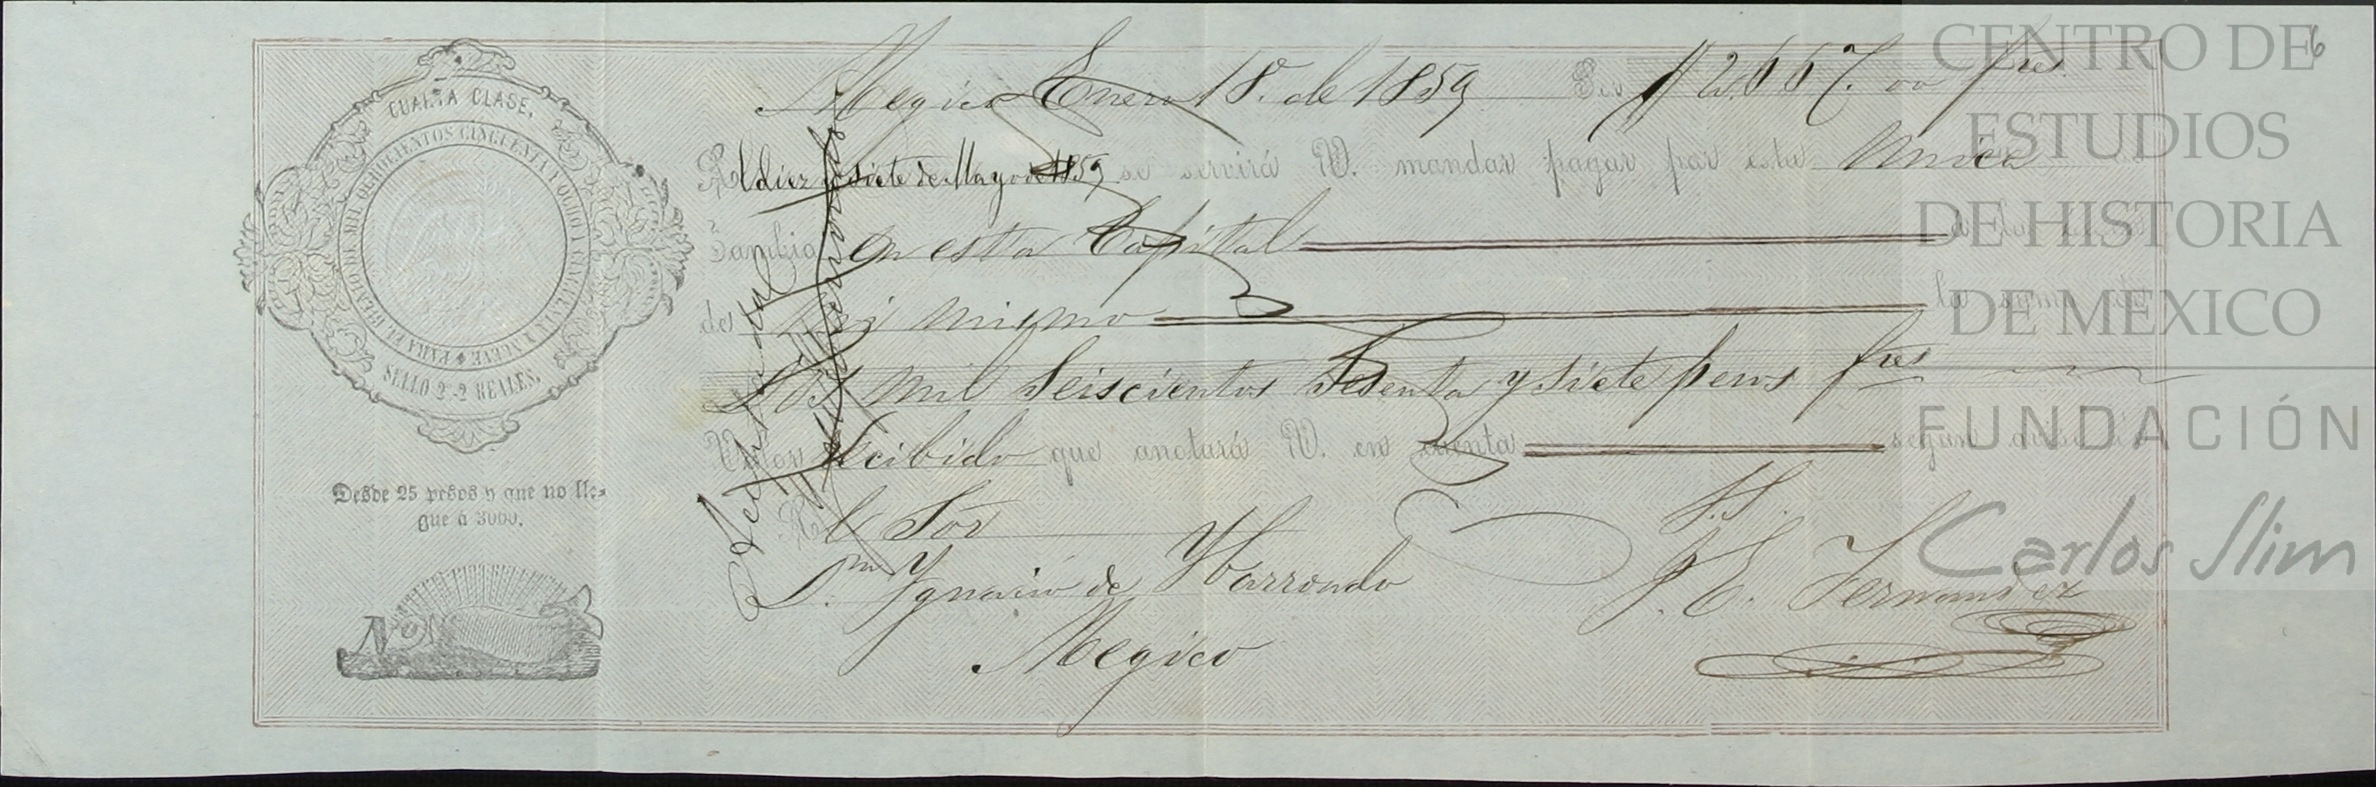 CUARTA CLASE.
PARA EL BIENIO DE MIL OCHOCIENTOS CINCUENTA Y OCHO Y CINCUENTA Y NUEVE
SELLO 2º-2 REALES.
Desde 25 pesos y que no lle-
gue á 3000.
Nº
Megico Enero 18. de 1859 Por $2.667.00 fres
Al diez y siete de Mayo de 1859 se servirá V. mandar pagar por esta Unica
Cambio en esta Capital a la orden
de mi mismo la suma de
Dos mil Seiscientos Sesenta y siete pesos fres
Valor recibido que anotará V. en cuenta segun aviso
Al Sor
Dn Ygnacio de Ybarrondo
Megico
S.S.
J. E. Fernandez
Acepto
6
CENTRO DE
ESTUDIOS
DE HISTORIA
DE MEXICO
FUNDACIÓN
Carlos Slim